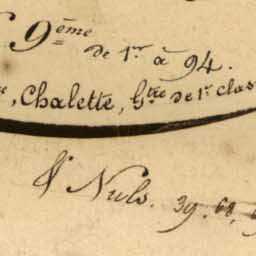 9ème
de 1er à 94.
Chalette, Gtre de 1r clas
Nuls. 39. 68,